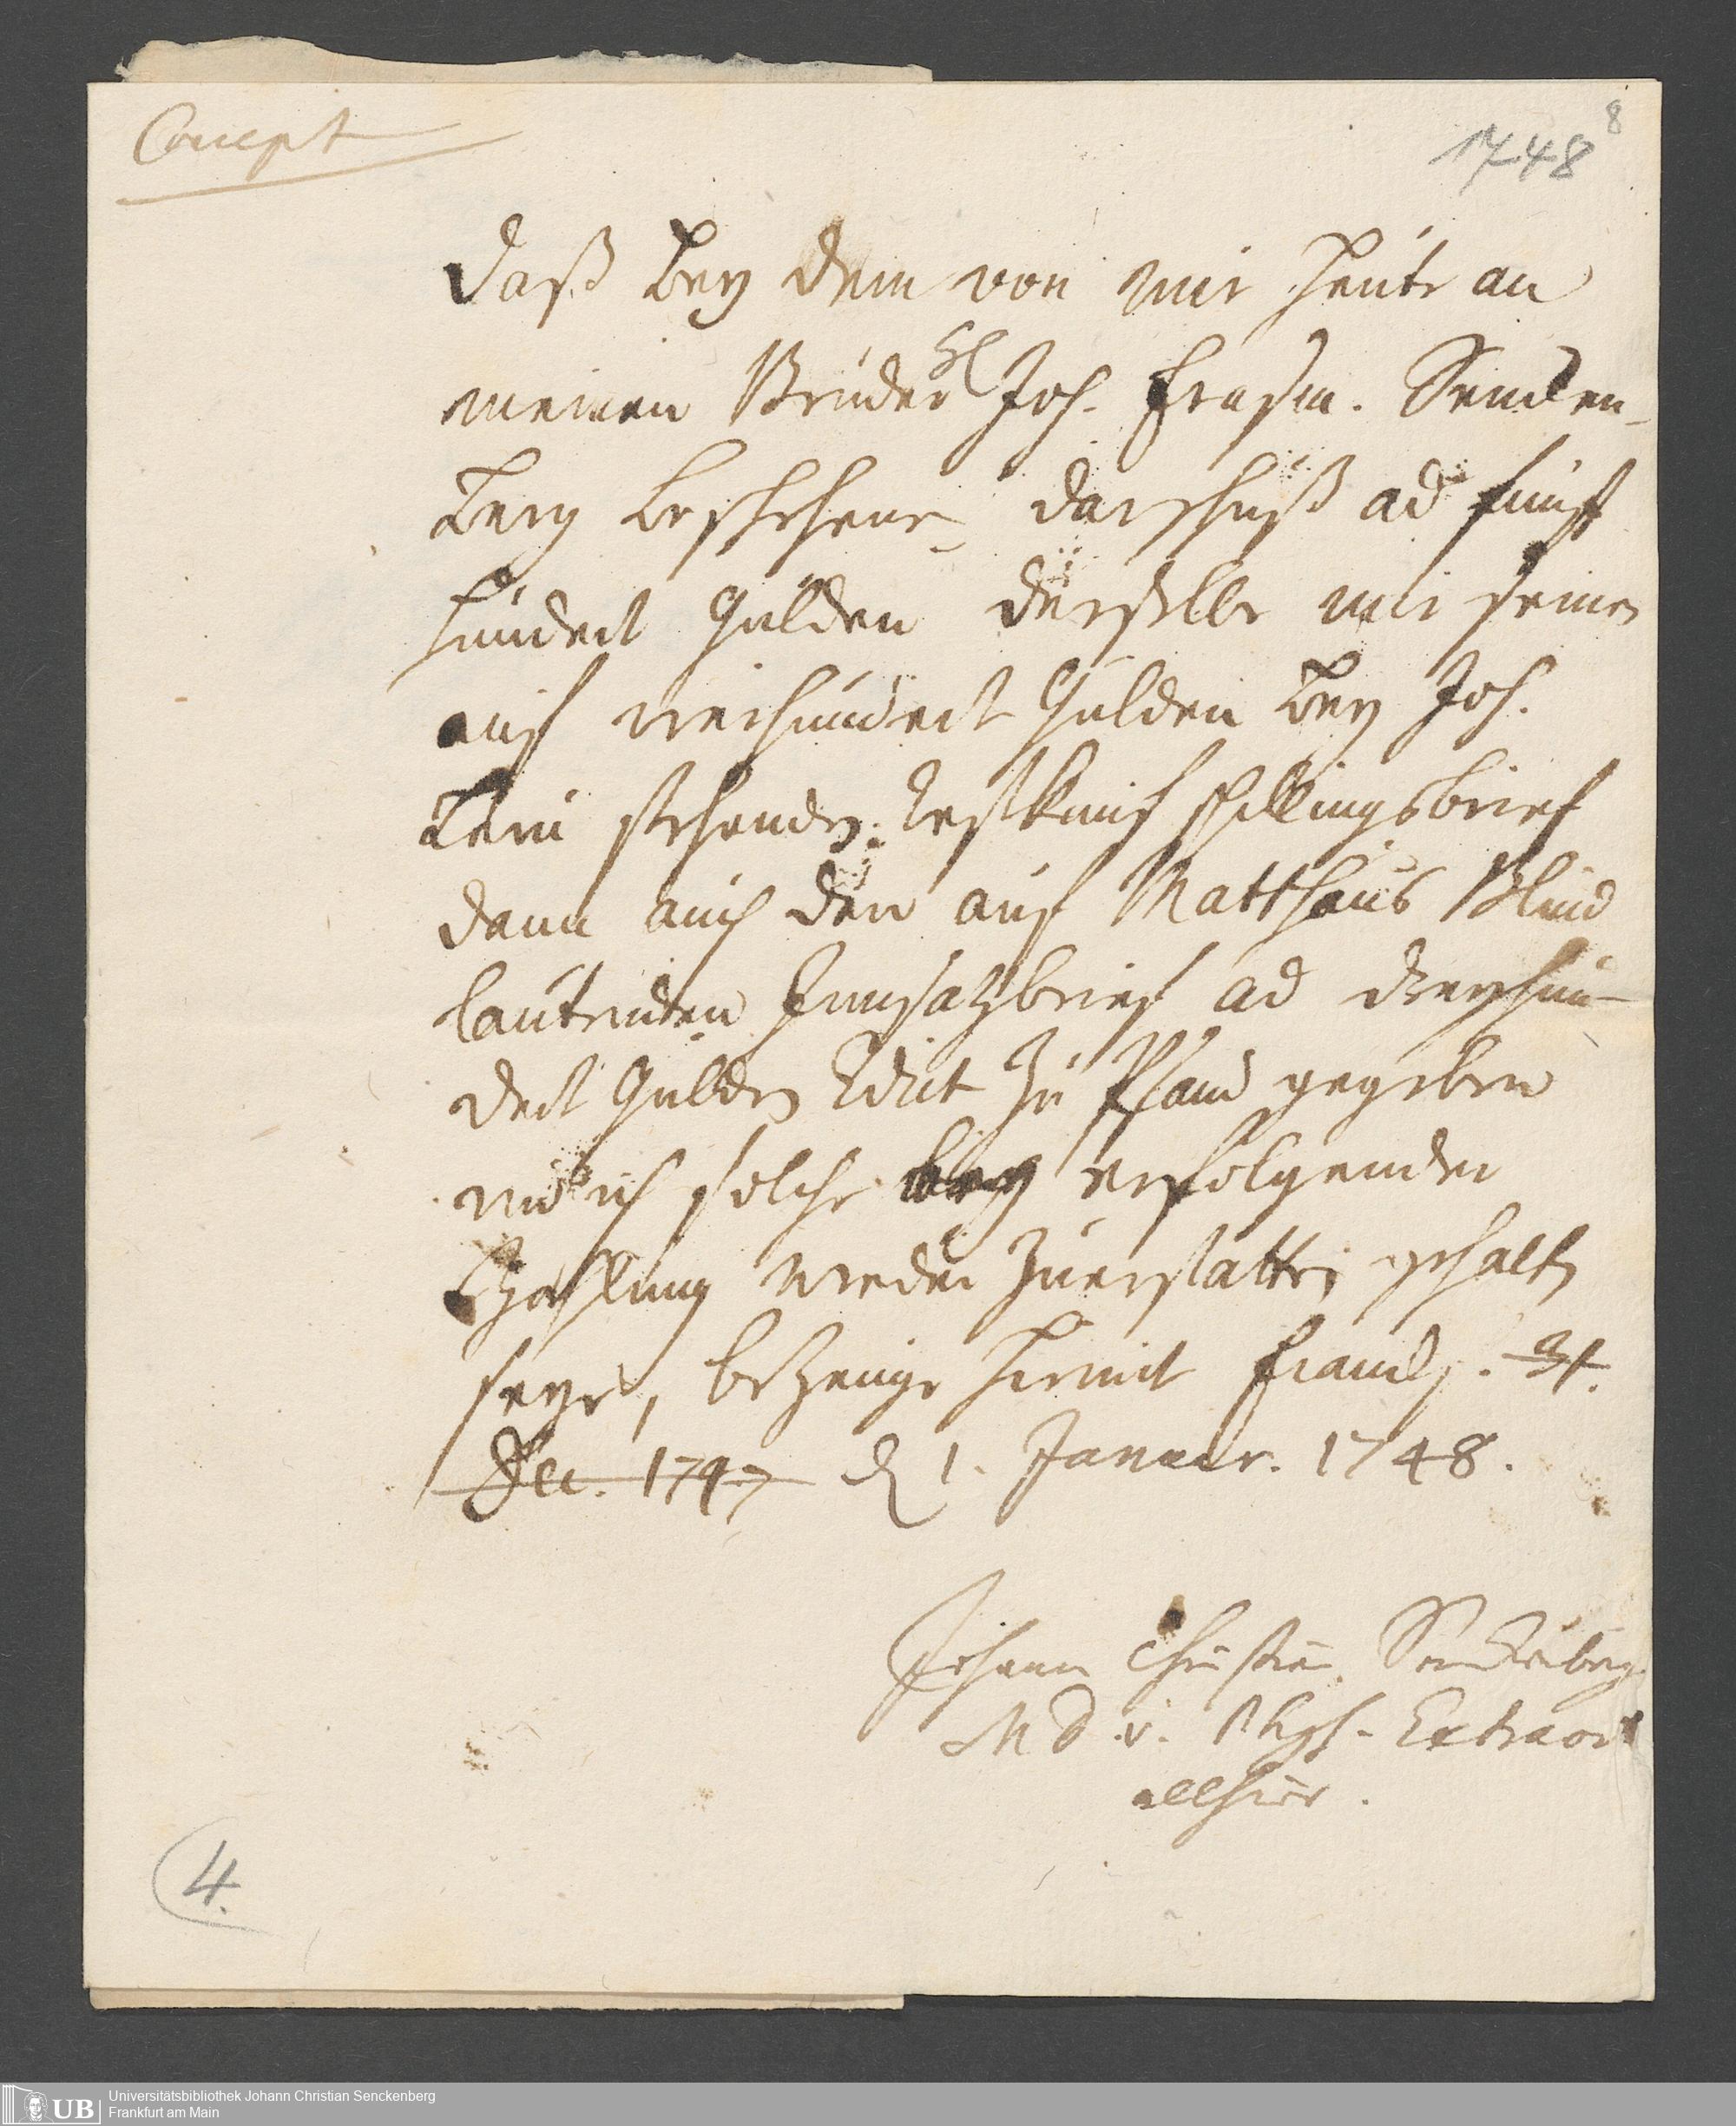 Concept
1748
8
Daß bey dem von mir heute an
meinen Bruder H Joh. Erasm. Sencken-
berg beschehene darschuß ad fünff
hundert Gulden derselbe mir seinen
auf vierhundert Gulden bey Joh.
stehenden Restkauffschillingsbrief
dann auch den auf Matthäus Blind
lautenden Einsatzbrief ad dreyhun-
dert Gulden Edict zu Pfand gegeben
und ich solche bey erfolgender
Zahlung wieder zuerstatten gehalten
seye, bezeuge hiermit Franckf. 31.
Dec. 1747 d 1. Januar. 1748.
Johann Christian Senckenberg
M D. u. Phys. Extraord
allhier.
4.
UB
Universitätsbibliothek Johann Christian Senckenberg
Frankfurt am Main